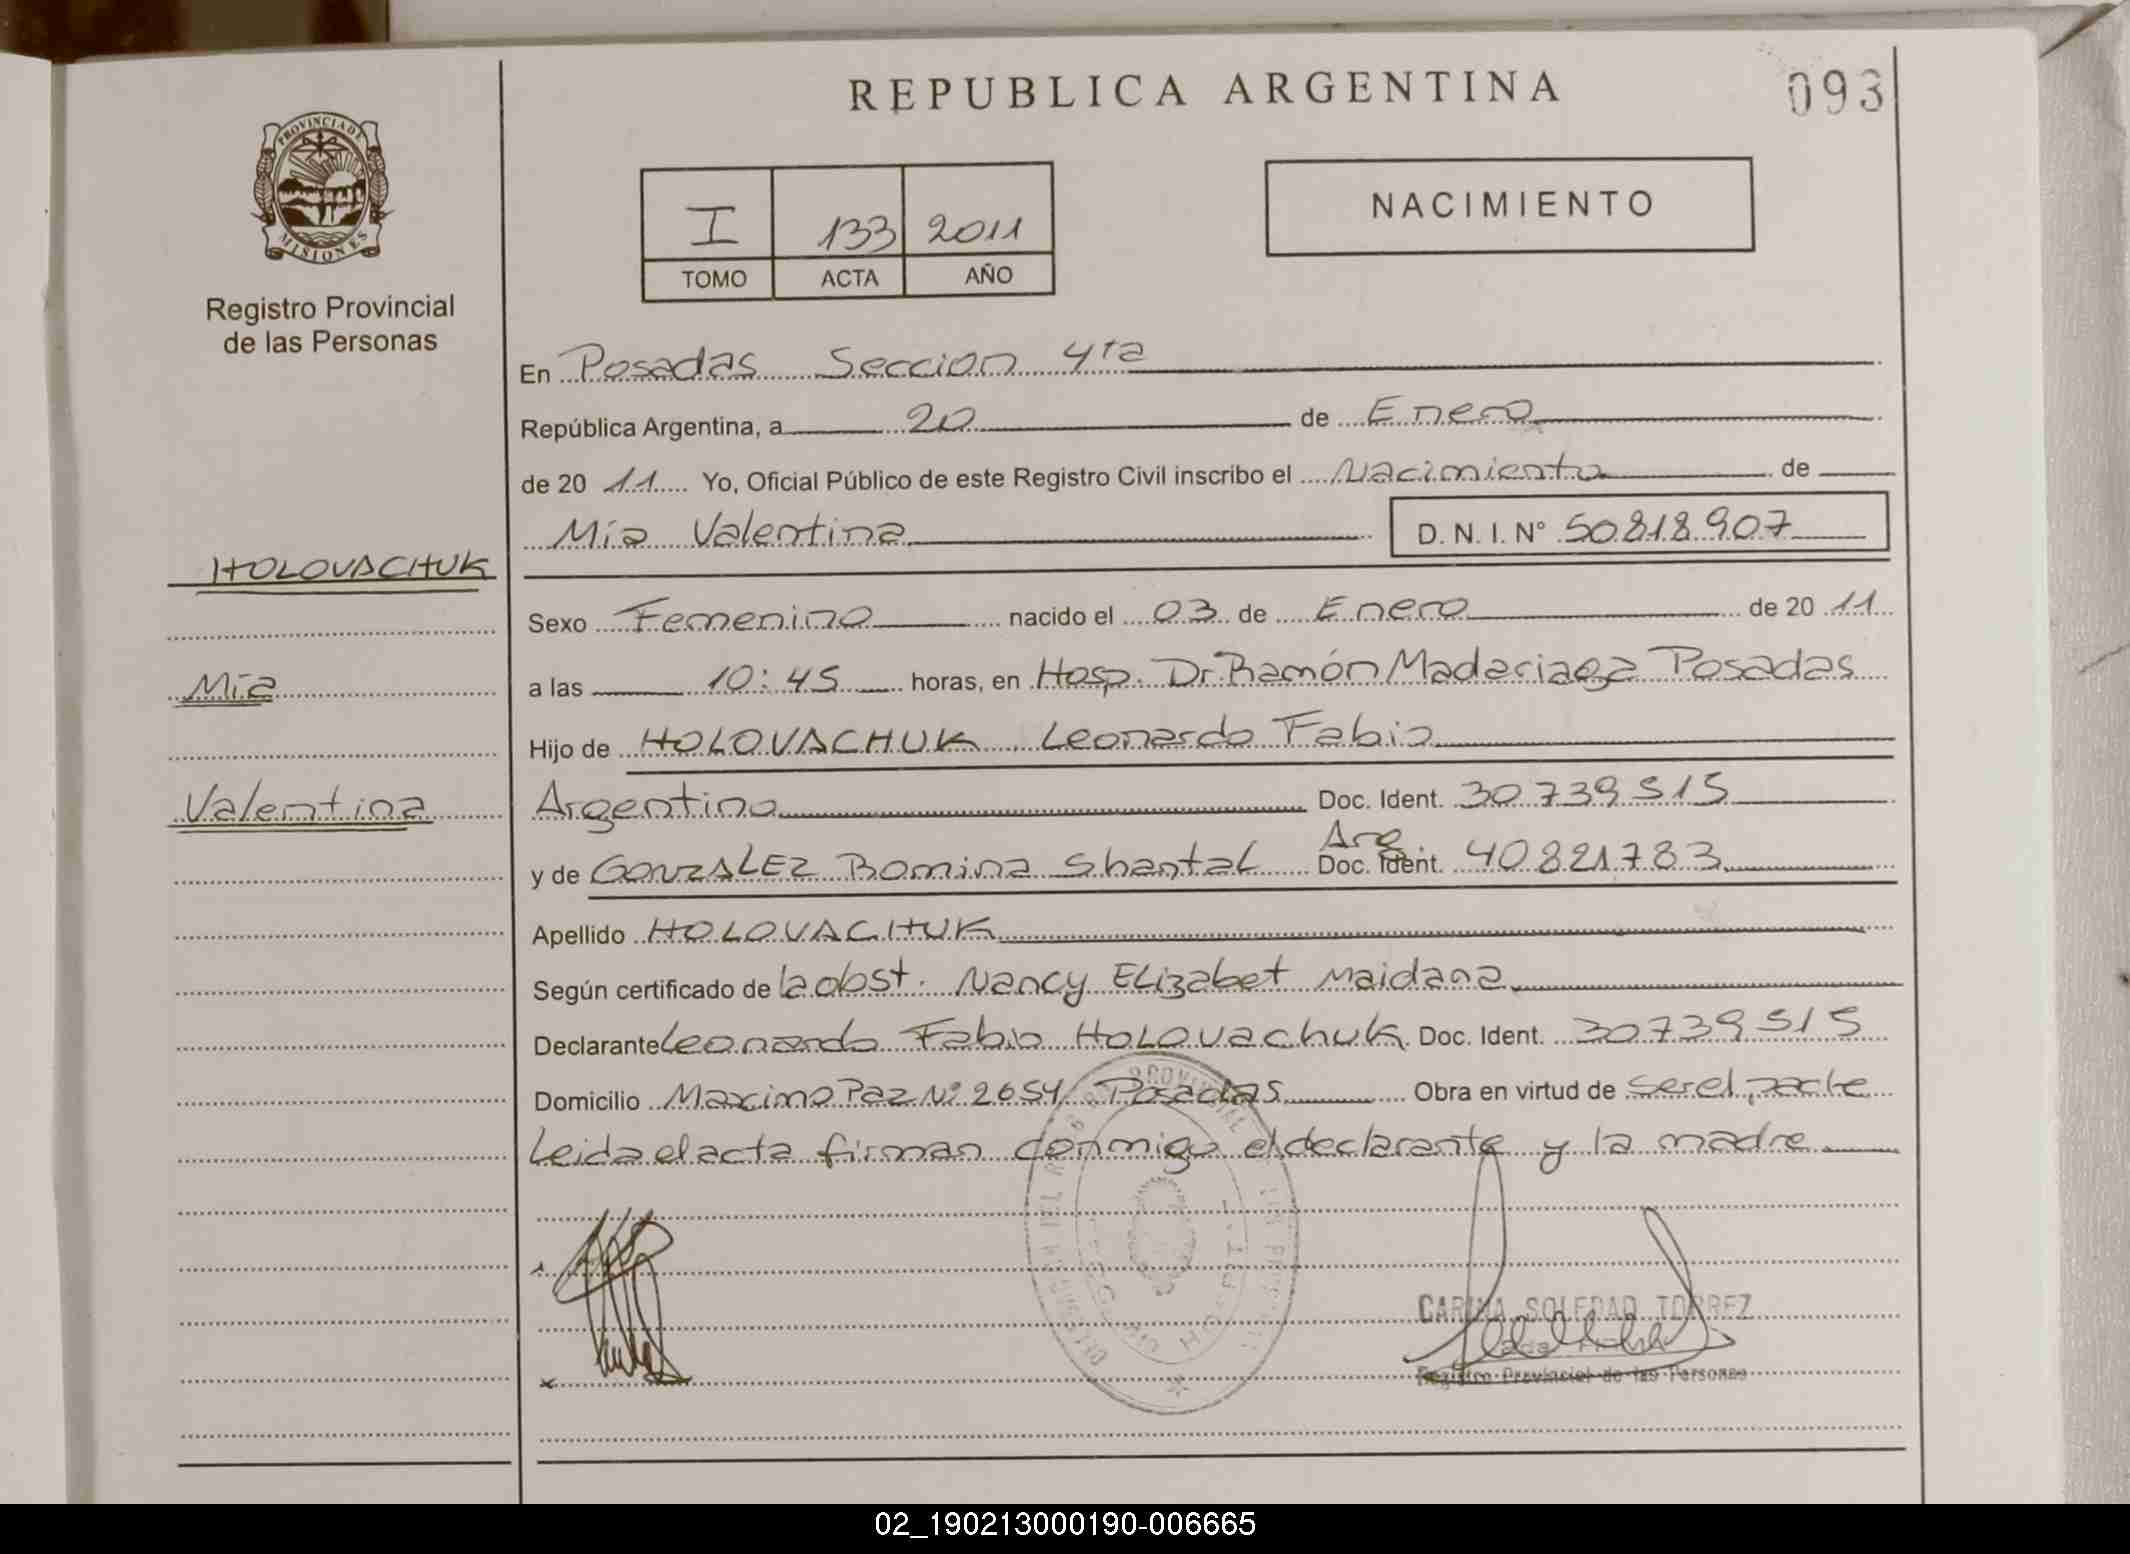 REPUBLICA ARGENTINA
093
PROVINCIA DE
MISIONES
Registro Provincial
de las Personas
I 133 2011
TOMO ACTA AÑO
NACIMIENTO
En Posadas Seccion 4ta
República Argentina, a 20 de Enero
de 20 11 Yo, Oficial Público de este Registro Civil inscribo el Nacimiento de
Mía Valentina D. N. I. Nº 50.818.907
HOLOVACHUK
Mía
Valentina
Sexo Femenino nacido el 03 de Enero de 20 11
a las 10:45 horas, en Hosp. Dr. Ramón Madariaga Posadas
Hijo de HOLOVACHUK Leonardo Fabio
Argentino Doc. Ident. 30.739.515
Arg.
y de GONZALEZ Romina Shantal Doc. Ident. 40.821.783
Apellido HOLOVACHUK
Según certificado de la obst. Nancy Elizabet Maidana
Declarante Leonardo Fabio Holovachuk Doc. Ident. 30.739.515
Domicilio Maximo Paz Nº 2654 Posadas Obra en virtud de ser el padre
Leida el acta firman conmigo el declarante y la madre
CARINA SOLEDAD TORREZ
Registro Provincial de las Personas
02_190213000190-006665